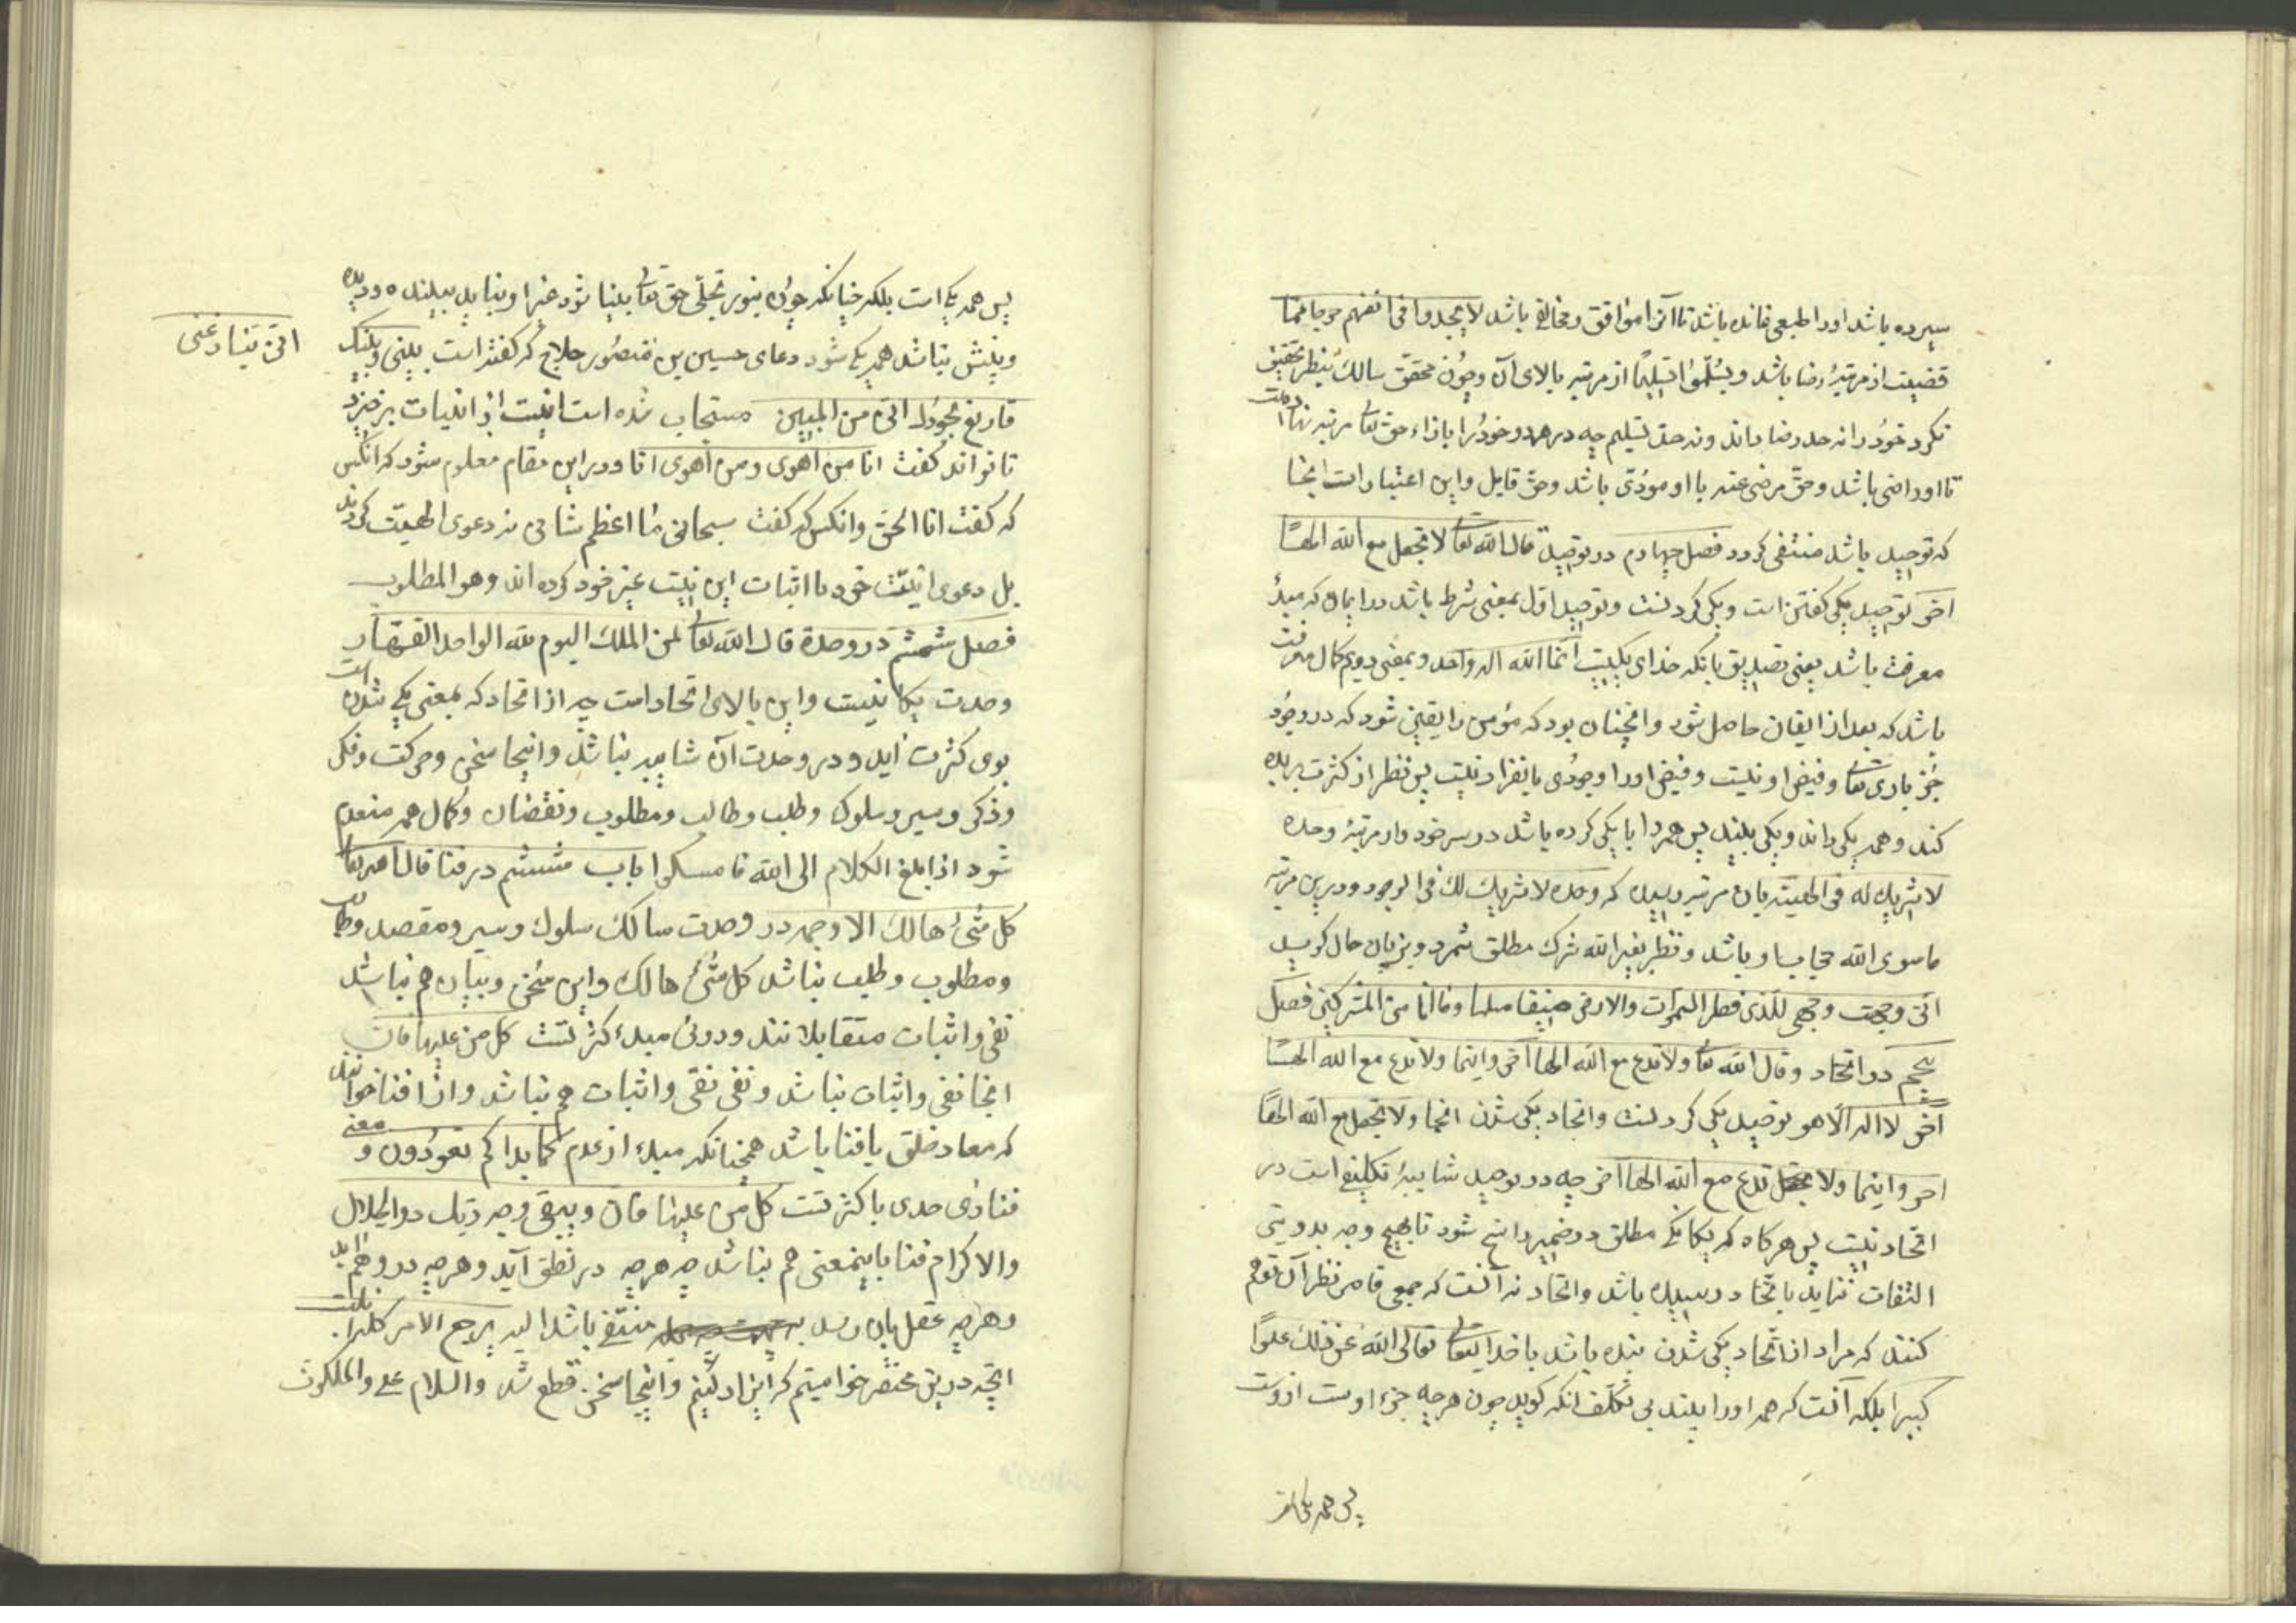 سپرده باشد او را طبعی نمانده باشد تا آنرا موافق و مخالف باشد لا یجدوا فی انفسهم حرجا مما
قضیت از مرتبۀ رضا باشد و یسلّموا تسلیمًا از مرتبه بالای آن و چون محقق سالک بنظر تحقیق
نکرد خود را نه حد رضا داند و نه حد تسلیم چه در هر دو خود را بازاء حق تعا مرتبه نهاده است
تا او راضی باشد و حق مرضی عنه یا او مودّی باشد و حق قابل و این اعتبارات اینجا
که توحید باشد منتفی کردد فصل چهارم در توحید قال الله تعا لا تجعل مع الله الهًا
اخر توحید یکی کفتن است و یکی کردنست و توحید اوّل بمعنی شرط باشد در ایمان که مبدأ
معرفت باشد یعنی تصدیق بانکه خدای یکیست انما الله اله واحد و بمعنی دویم کمال معرفت
باشد که بعد از ایقان حاصل شود و انچنان بود که مؤمن را یقین شود که در وجود
جز باری تعا و فیض او نیست و فیض او را وجودی بانفراد نیست پس نظر از کثرت بریده
کند و همه یکی داند و یکی بیند پس همه را با یکی کرده باشد در سر خود و از مرتبۀ وحده
لا شریک له فی الهیته بان مرتبه رسیده که وحده لا شریک لک فی الوجود و درین مرتبه
ماسوی الله حجاب او باشد و نظر بغیر الله شرک مطلق شمرد و بزبان حال کوید
انی وجهت وجهی للذی فطر السموات والارض حنیفا مسلما وما انا من المشرکین فصل
پنجم در اتحاد و قال الله تعا ولا تدع مع الله الها آخر و اینما ولا تدع مع الله الهًا
آخر لا اله الا هو توحید یکی کردنست و اتحاد یکی شدن انجا ولا تجعل مع الله الهًا
اخر و اینجا ولا تدع مع الله الها اخر چه در توحید شایبۀ تکلیفی است در
اتحاد نیست پس هر کاه که یکانکی مطلق در ضمیر راسخ شود تا بهیچ وجه بدویی
التفات ننماید باتحاد رسیده باشد و اتحاد نه آنست که جمعی قاصر نظر آن توهم
کنند که مراد از اتحاد یکی شدن بنده باشد با خدا یتعا تعالی الله عن ذلک علوًا
کبیرا بلکه آنست که همه او را بیند بی تکلف انکه کوید چون هر چه جزء اوست ازوست
پس همه یکی است
پس همه یکی است بلکه چنانکه چون بنور تجلّی حق تعا بینا شود غیر او نیابد بیننده و دیده
و بینش نباشد همه یکی شود دعای حسین بن منصور حلاج که کفته است بینی و بینک
انی ینازعنی
فارفع بجودک انی من البین مستجاب شده است انیت از انیات برخیزد
تا تواند کفت انا من اهوی ومن اهوی انا و در این مقام معلوم شود که انکس
که کفت انا الحق و انکس که کفت سبحانی ما اعظم شانی نه دعوی الهیّت کردند
بل دعوی انیّت خود با اثبات این نیست غیر خود کرده اند و هو المطلوب
فصل ششم در وحدة قال الله تعا لمن الملک الیوم لله الواحد القهّار
وحدت یکانیست و این بالای اتحاد است چه از اتحاد که بمعنی یکی شدن است
بوی کثرت اید و در وحدت آن شایبه نباشد و اینجا سخن و حرکت و فکر
و ذکر و سیر و سلوک و طلب و طالب و مطلوب و نقصان و کمال همه منعدم
شود اذا بلغ الکلام الی الله فامسکوا باب ششم در فنا قال الله تعا
کل شئ هالک الا وجهه در وحدت سالک سلوک و سیر و مقصد و طالب
و مطلوب و طلب نباشد کل شئ هالک و این سخن و بیان هم نباشد
نفی و اثبات متقابلانند و دوئی مبدء کثرتست کل من علیها فان
انجا نفی و اثبات نباشد و نفی نفی و اثبات هم نباشد و انرا فنا خوانند
که معاد خلق با فنا باشد همچنانکه مبدء از عدم کما بداکم تعودون و معنی
فنا را حدی با کثرتست کل من علیها فان ویبقی وجه ربک ذوالجلال
والاکرام فنا باینمعنی هم نباشد چه هر چه در نطق آید و هر چه در وهم اید
و هر چه عقل بان رسد منتفی باشد الیه یرجع الامر کله اینست
انچه درین مختصر خواستیم که ایراد کنیم و اینجا سخن قطع شد والسلام علی والملکوت